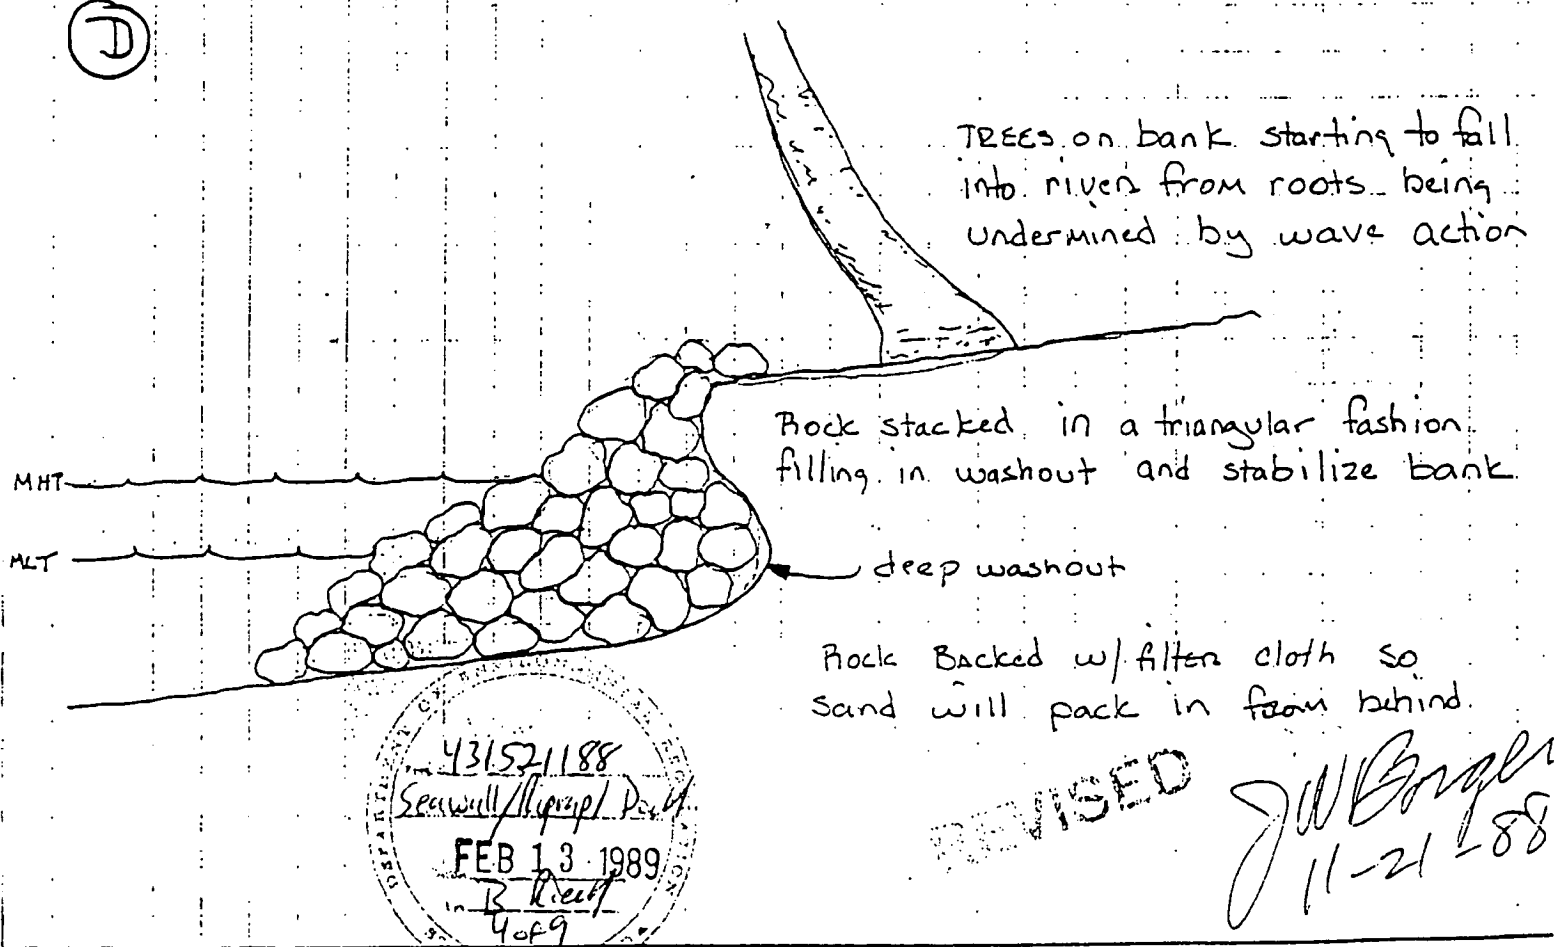 D
TREES on bank starting to fall
into river from roots being
undermined by wave action
Rock stacked in a triangular fashion
filling in washout and stabilize bank
MHT
MLT
deep washout
Rock Backed w/ filter cloth so
sand will pack in from behind.
DEPARTMENT OF
431521188
Seawall/Riprap/
FEB 13 1989
4 of 9
REVISED
11-21-88